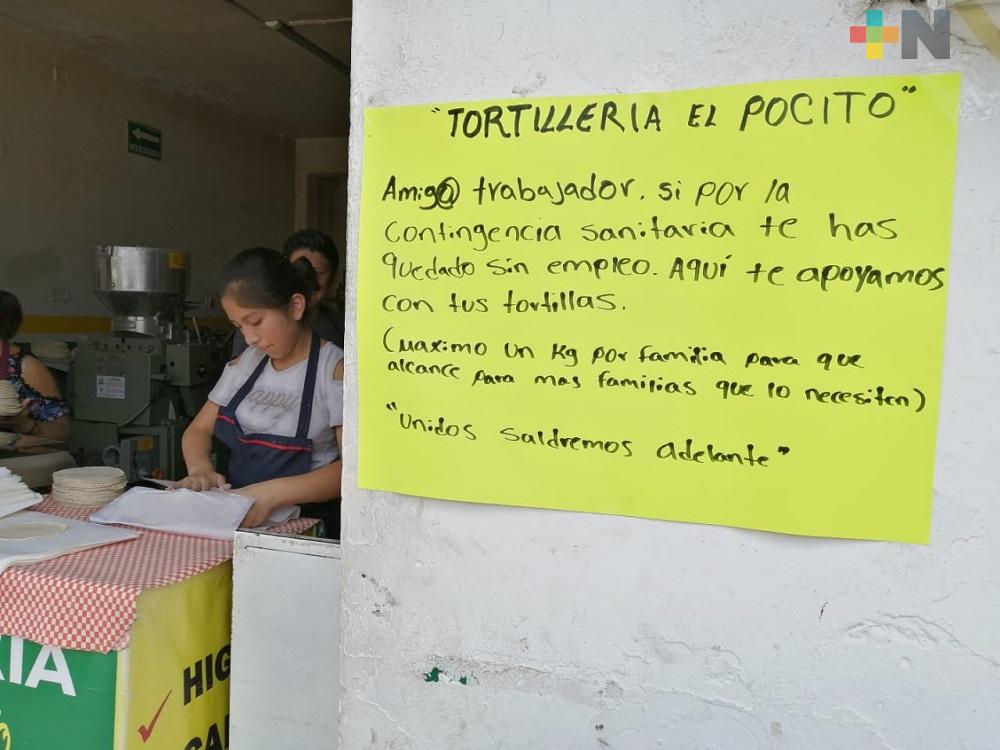 +N
"TORTILLERIA EL POCITO"
Amig@ trabajador. si por la
contingencia sanitaria te has
quedado sin empleo. AQUÍ te apoyamos
con tus tortillas.
(Maximo un Kg por familia para que
alcance para mas familias que lo necesiten)
"Unidos saldremos adelante"
happy
IA
HIG
CAL